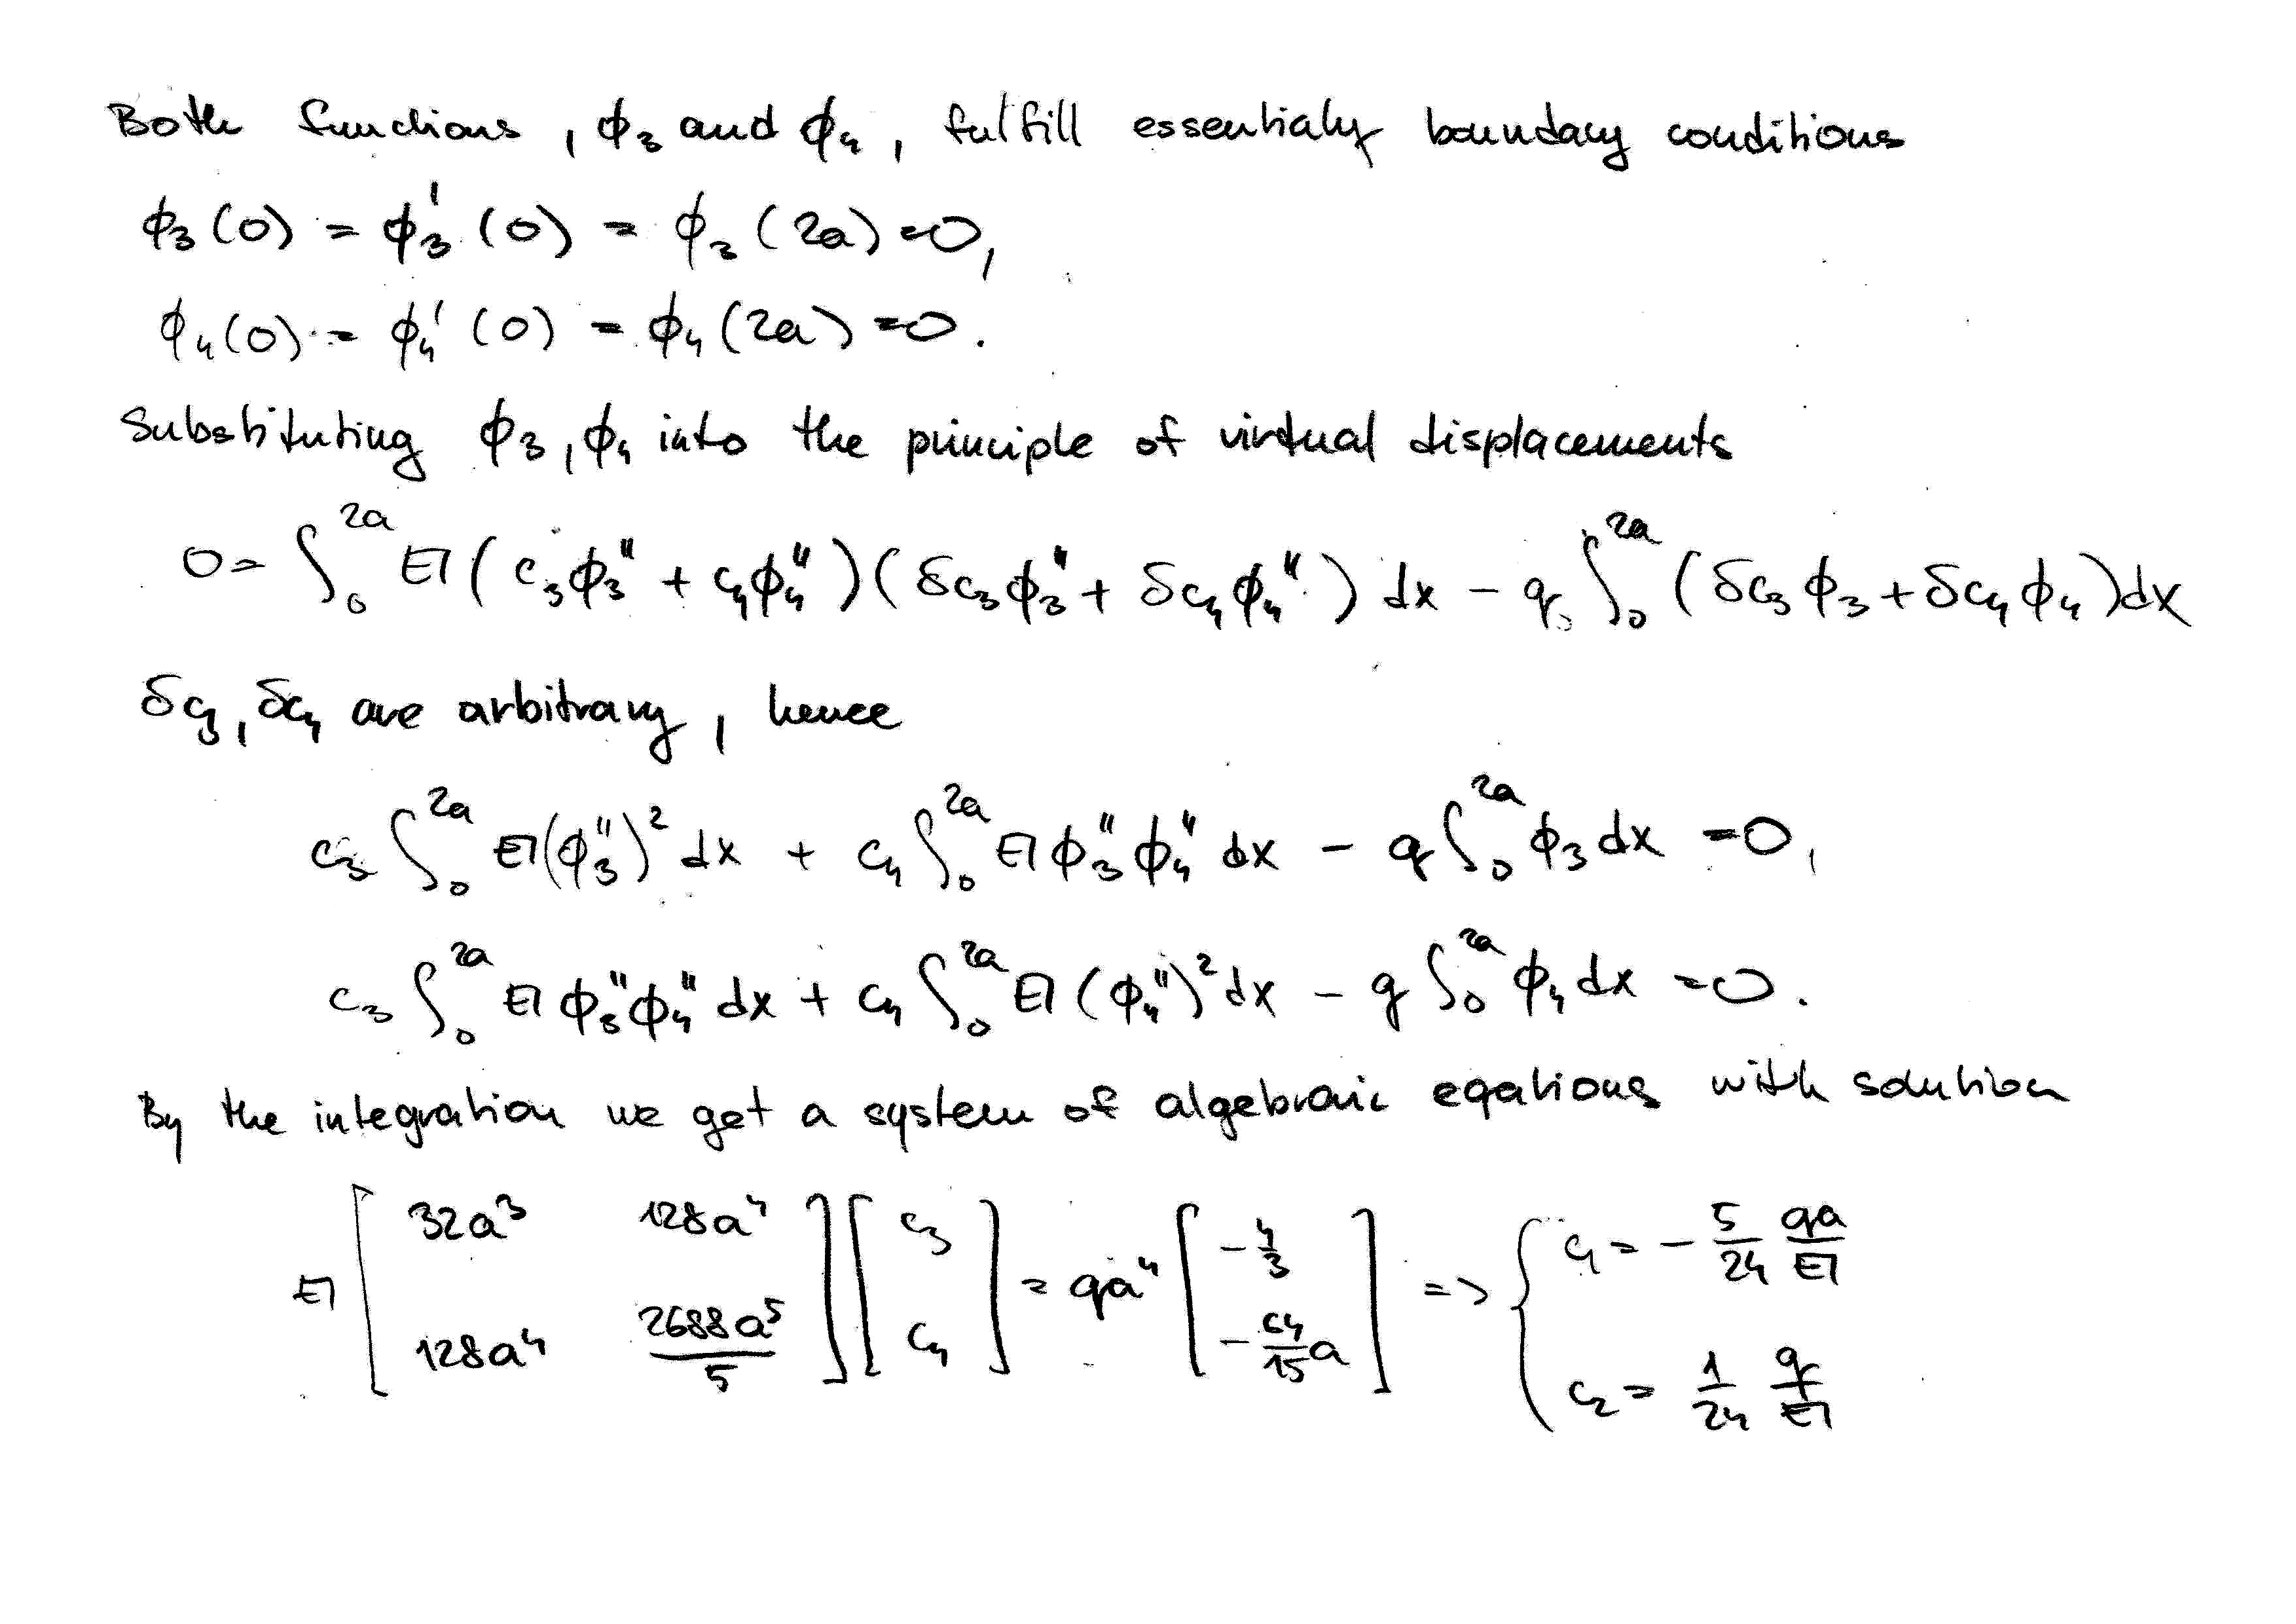 Both functions, ϕ₃ and ϕ₄, fulfill essentialy boundary conditions
ϕ₃(0) = ϕ₃'(0) = ϕ₃(2a) = 0,
ϕ₄(0) = ϕ₄'(0) = ϕ₄(2a) = 0.
Substituting ϕ₃, ϕ₄ into the principle of virtual displacements
0 = ∫₀^{2a} EI (c₃ϕ₃'' + c₄ϕ₄'')(δc₃ϕ₃'' + δc₄ϕ₄'') dx − q ∫₀^{2a} (δc₃ϕ₃ + δc₄ϕ₄) dx
δc₃, δc₄ are arbitrary, hence
c₃ ∫₀^{2a} EI(ϕ₃'')² dx + c₄ ∫₀^{2a} EI ϕ₃''ϕ₄'' dx − q ∫₀^{2a} ϕ₃ dx = 0,
c₃ ∫₀^{2a} EI ϕ₃''ϕ₄'' dx + c₄ ∫₀^{2a} EI (ϕ₄'')² dx − q ∫₀^{2a} ϕ₄ dx = 0.
By the integration we get a system of algebraic eqations with solution
EI [32a³ 128a⁴; 128a⁴ 2688a⁵/5] [c₃; c₄] = qa⁴ [−4/3; −64/15 a] => { c₁ = −5/24 qa/EI; c₂ = 1/24 q/EI